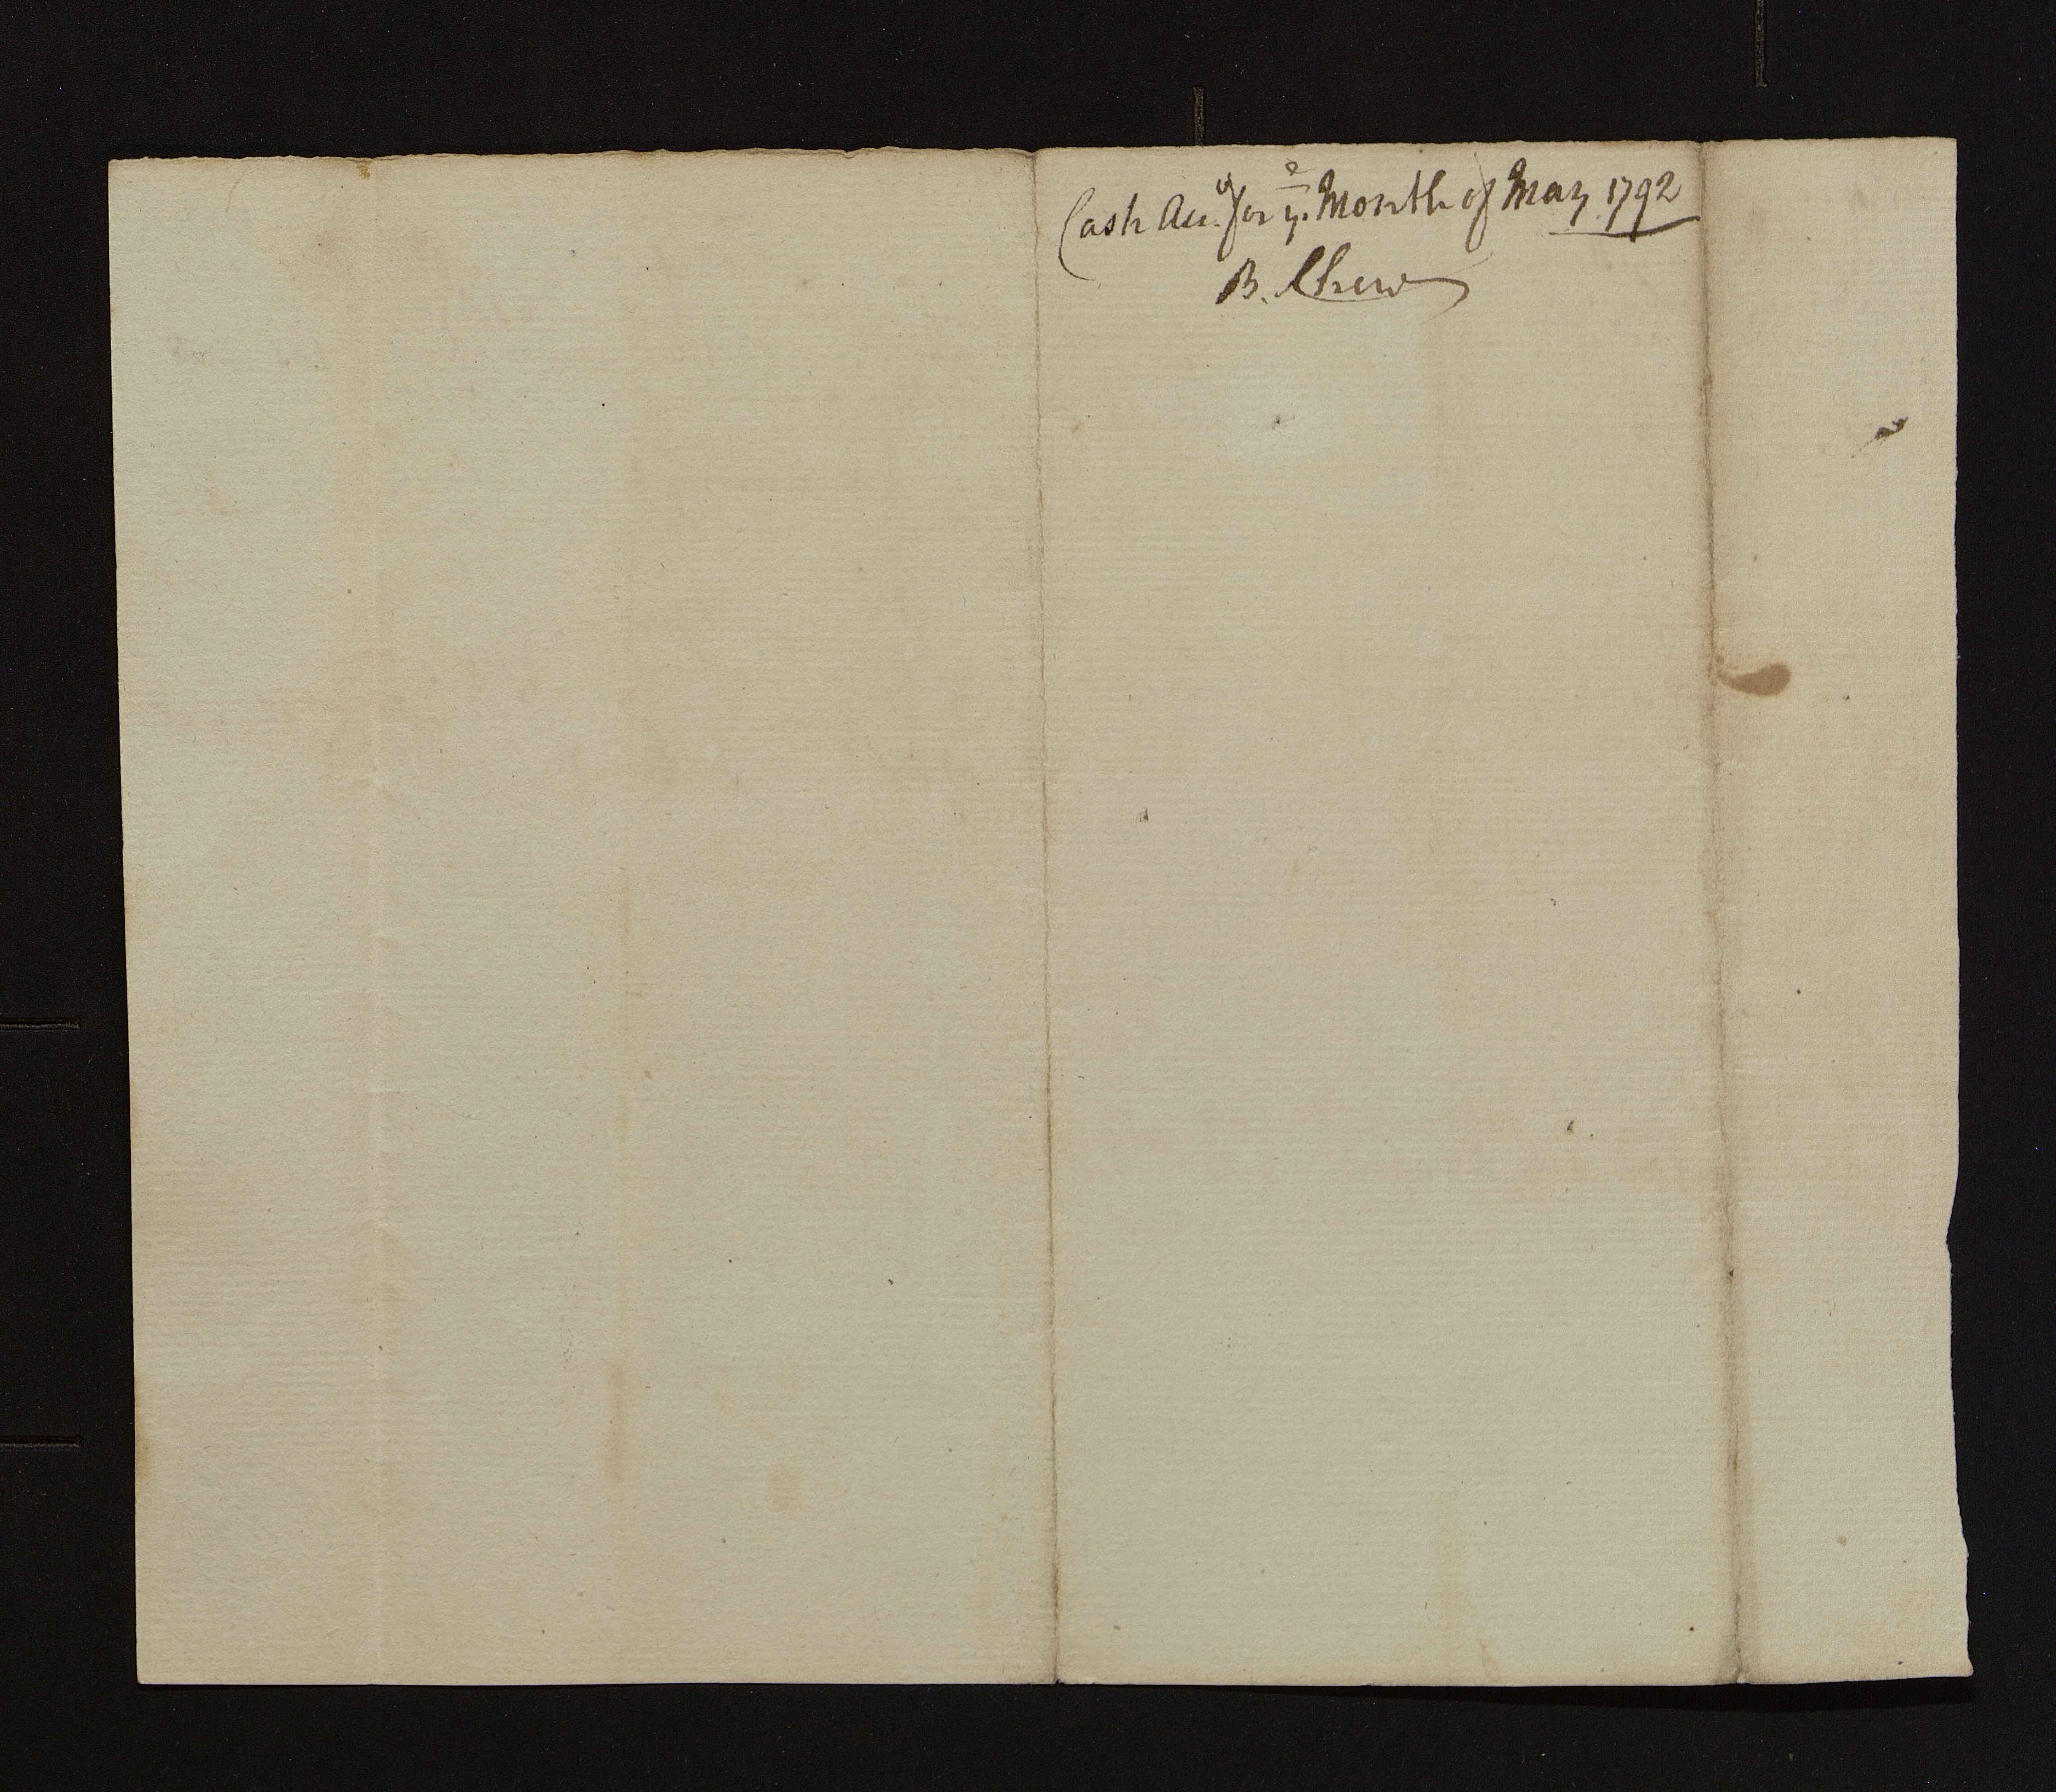 Cash Acct. for ye. Month of May 1792
B. Chew